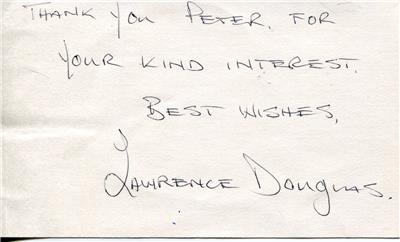 THANK YOU PETER. FOR
YOUR KIND INTEREST.
BEST WISHES,
LAWRENCE DOUGLAS.